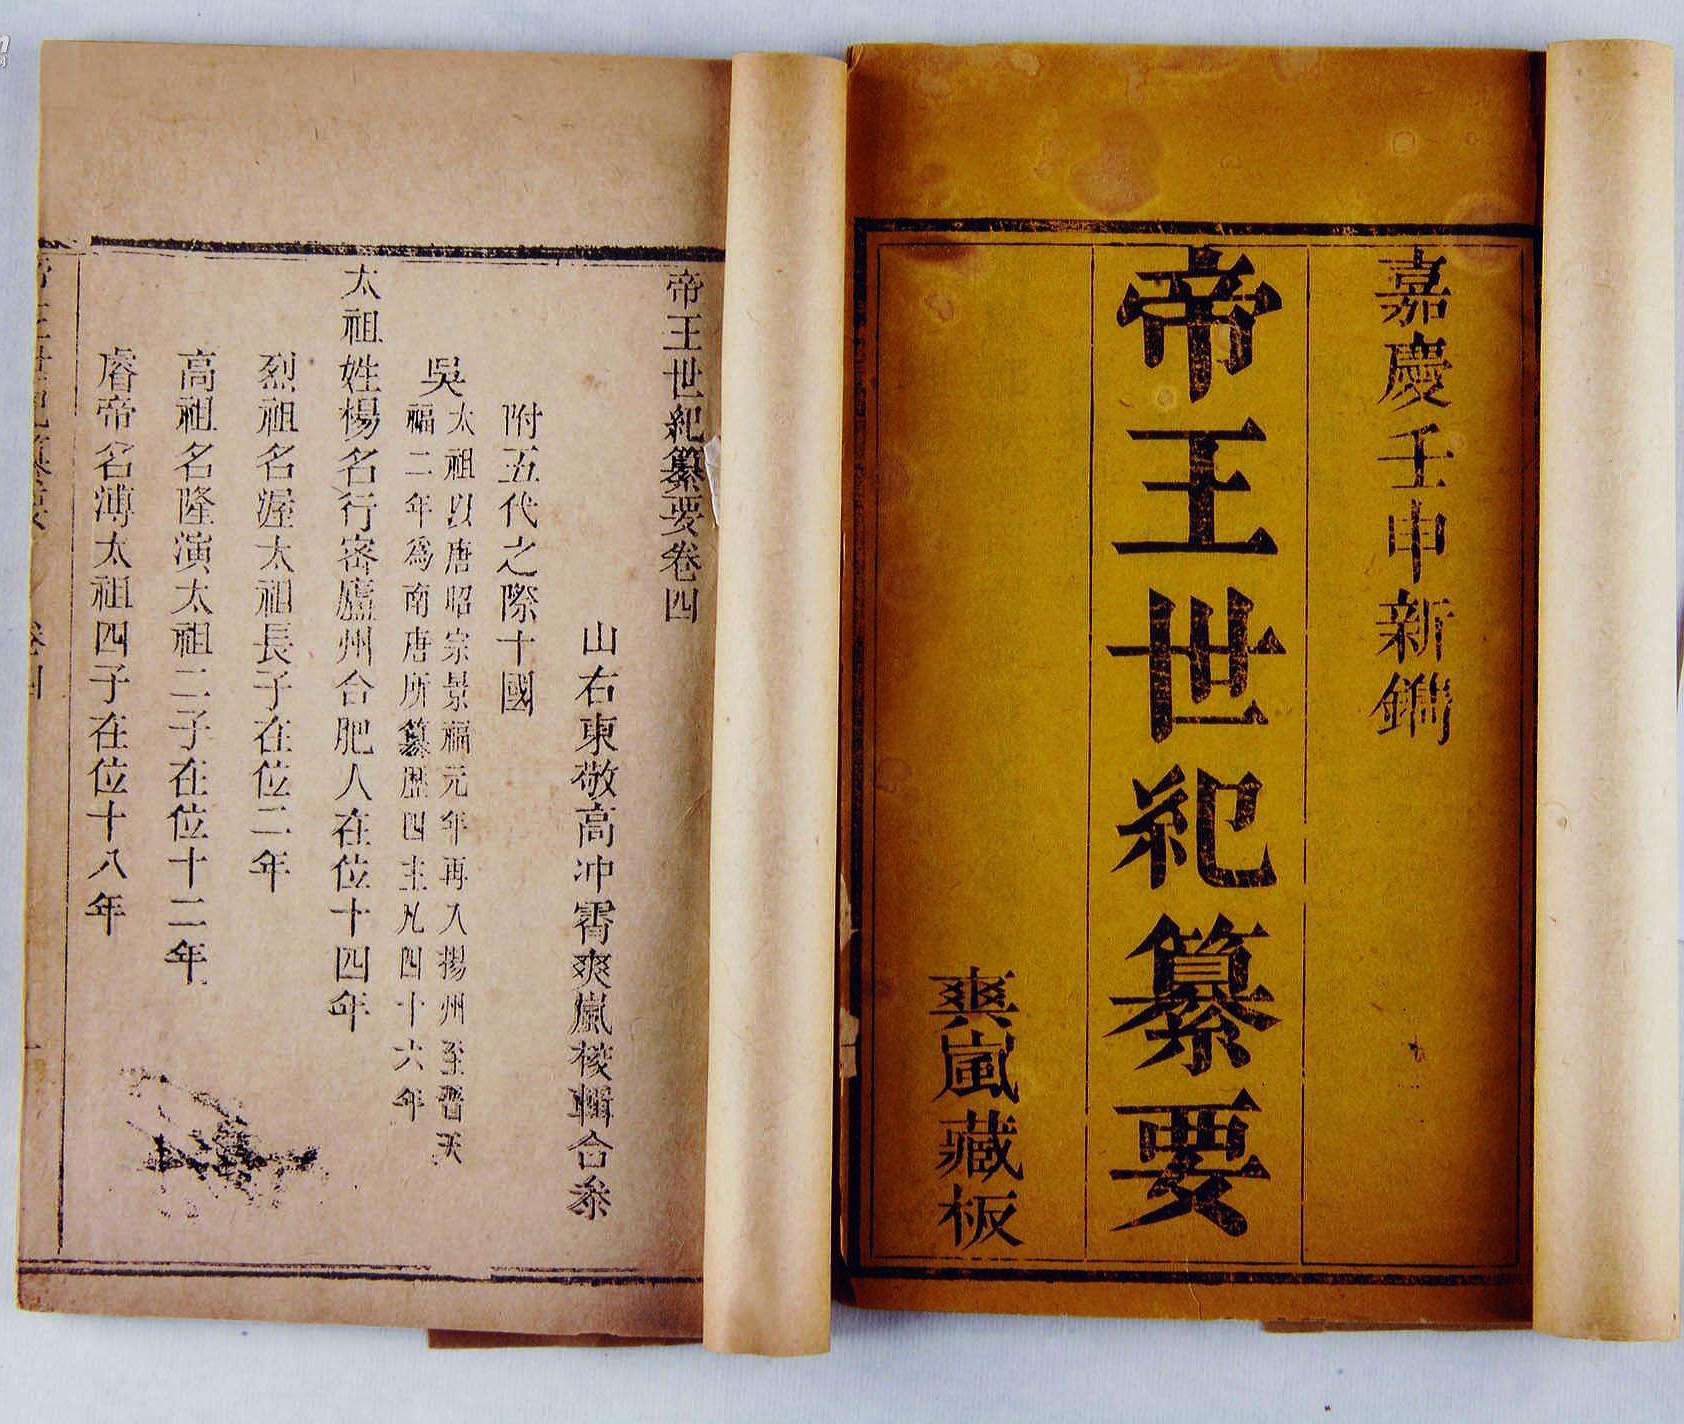 嘉慶壬申新鐫
帝王世紀纂要
爽嵐藏板
帝王世紀纂要卷四
山右東敬高冲霄爽嵐梭輯合叅
附五代之際十國
吳太祖以唐昭宗景福元年再入揚州至晉天
福二年爲南唐所篡歷四主凡四十六年
太祖姓楊名行密廬州合肥人在位十四年
烈祖名渥太祖長子在位二年
高祖名隆演太祖二子在位十二年
睿帝名溥太祖四子在位十八年